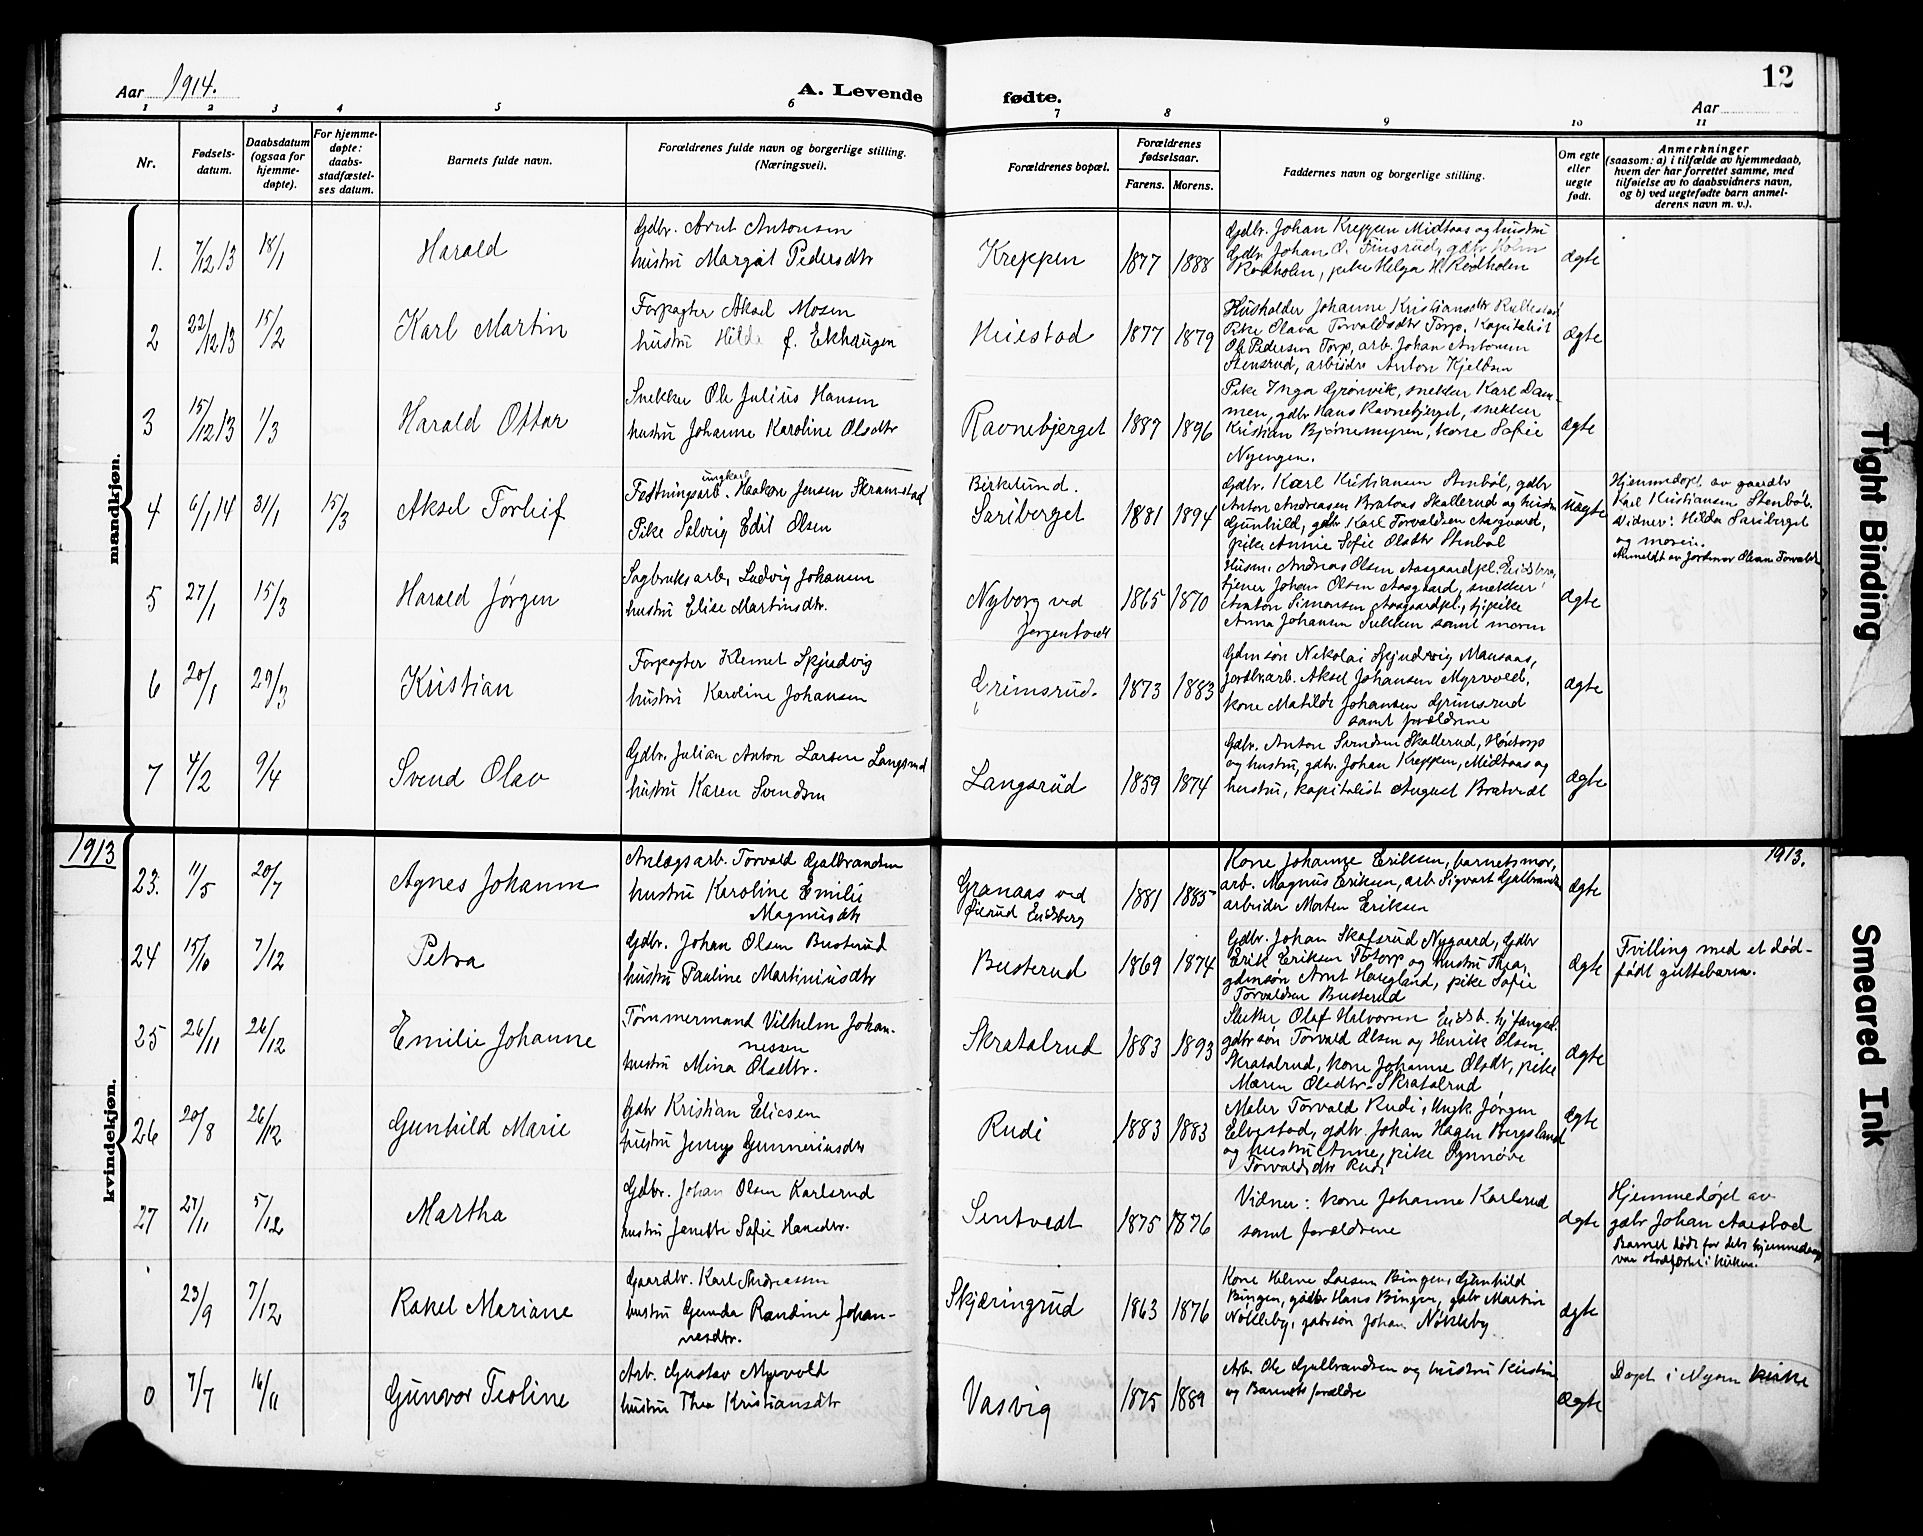 Aar 1914.
A. Levende
fødte.
12
Aar
1 2 3 4 5 6 7 8 9 10 11
Nr.
Fødsels-
datum.
Daabsdatum
(ogsaa for
hjemme-
døpte).
For hjemme-
døpte:
daabs-
stadfæstel-
ses datum.
Barnets fulde navn.
Forældrenes fulde navn og borgerlige stilling.
(Næringsvei).
Forældrenes bopæl.
Forældrenes
fødselsaar.
Farens. Morens.
Faddernes navn og borgerlige stilling.
Om egte
eller
uegte
født.
Anmerkninger
(saasom: a) i tilfælde av hjemmedaab,
hvem der har forrettet samme, med
tilføielse av to daabsvidners navn,
og b) ved uegtefødte barn anmel-
derens navn m. v.).
mandkjøn.
1. 7/12 13 18/1 Harald
Gdbr. Arnt Antonsen
hustru Margit Pedersdtr
Kreppen 1877 1888
Gdbr. Johan Kreppen Midtaas og hustru
Gdbr. Johan O. Finsrud, gdbr Holm
Rødholen, pike Helga H. Rødholen
ægte
2 22/12 13 15/2 Karl Martin
Forpagter Aksel Mosen
hustru Hilda f. Ekhaugen
1877 1879
Husholder Johanne Kristiansdtr
Pike Olava Torvaldsdtr Torp, Kapitalist
Ole Pedersen Torp, arb. Johan Antonsen
Stensrud, arbeider Anton Kjeldsen
ægte
3 15/12 13 1/3 Harald Ottar
Snekker Ole Julius Hansen
hustru Johanne Karoline Olsdtr
Ravnebjerget 1887 1896
Pike Inga Grønvik, snekker Karl Dam-
men, gdbr Hans Ravnebjerget, snekker
Kristian Bjørnemyren, kone Sofie
Nyengen.
ægte
4 6/1 14 31/1 15/3 Aksel Torleif
ungkarl
Fæstningsarb. Haakon Jensen Skramstad
Pike Solveig Edit Olsen
Birkelund.
Sariberget 1881 1894
Gdbr. Karl Kristiansen Stenbøl, gdbr
Anton Andreasen Braataas Skallerud og hustru
Gunhild, gdbr Karl Torvaldsen Aasgaard,
pike Annie Sofie Olsdtr Stenbøl
uægte
Hjemmedøpt av gaardbr
Karl Kristiansen Stenbøl.
Vidner: Hilda Sariberget
og moren.
Anmeldt av Jordmor
5 27/1 15/3 Harald Jørgen
Sagbruksarb. Ludvig Johansen
hustru Elise Martinsdtr.
Nyborg ved
Jørgentvedt
1865 1870
Husm. Andreas Olsen Aasgaardpl. Eidsberg,
tjener Johan Olsen Aasgaard, snekker
Anton Simonsen Aasgaardpl., tj.pike
Anna Johansen Sukken samt moren
ægte
6 20/1 29/3 Kristian
Forpagter Klemet Skjudvig
hustru Karoline Johansen
Grimsrud. 1873 1883
Gdmsøn Nikolai Skjudvig Mansaas,
jordbr.arb. Aksel Johansen Myrvold,
kone Matilde Johansen Grimsrud
samt forældrene
ægte
7 4/2 9/4 Svend Olav
Gdbr. Julian Anton Larsen Langsrud
hustru Karen Svendsen
Langsrud 1859 1874
Gdbr. Anton Svendsen Skallerud, Høitorp
og hustru, gdbr. Johan Kreppen, Midtaas og
hustru, kapitalist August Bratvedt
ægte
1913
1913.
kvindekjøn.
23. 11/5 20/7 Agnes Johanne
Anlægsarb. Torvald Gulbrandsen
hustru Karoline Emilie
Magnusdtr
Granaas ved
Øierud Eidsberg
1881 1885
Kone Johanne Eriksen, barnets mor,
arb. Magnus Eriksen, arb Sigvart Gulbrandsen
arbeider Morten Eriksen
ægte
24 15/10 7/12 Petra
Gdbr. Johan Olsen Busterud
hustru Pauline Martiniusdtr
Busterud 1869 1874
Gdbr. Johan Skofsrud Nygaard, Gdbr
Erik Eriksen Totorp og hustru Thea,
gdmsøn Arnt Haugland, pike Sofie
Torvaldsen Busterud
ægte
Tvilling med et død-
født guttebarn.
25 26/11 26/12 Emilie Johanne
Tømmermand Vilhelm Johan-
nessen
hustru Mina Olsdtr.
Skratalrud 1883 1893
Olaf Halvorsen
gdbrsøn Torvald Olsen og Henrik Olsen,
Skratalrud, kone Johanne Olsdtr, pike
Maren Olsdtr Skratalrud
ægte
26 20/8 26/12 Gunhild Marie
Gdbr Kristian Elicsen
hustru Jenny Gunneriusdtr
Rudi 1883 1883
Maler Torvald Rudi, Ungk. Jørgen
Elvestad, gdbr Johan Hagen Bergsland
og hustru Anne, pike Synnøve
Torvaldsdtr Rudi
ægte
27 27/11 5/12 Martha
Gdbr. Johan Olsen Karlsrud
hustru Janette Sofie Hansdtr.
Sentvedt 1875 1876
Vidner: kone Johanne Karlsrud
samt forældrene
ægte
Hjemmedøpt av
gdbr Johan Aaestad
Barnet døde før dets hjemmedaap
var stadfæstet i kirken.
23/9 7/12 Rakel Mariane
Gaardbr. Karl Andreassen
hustru Gunda Randine Johan-
nesdtr.
Skjæringrud 1863 1876
Kone Helene Larsen Bingen, Gunhild
Bingen, gaardbr Hans Bingen, gdbr Martin
Nøkleby, gdbrsøn Johan Nøkleby
ægte
0 7/7 16/11 Gunvor Teoline
Arb. Gustav Myrvold
hustru Thea Kristiansdtr
Vasvig 1875 1889
Arb. Ole Gulbrandsen og hustru Kristine
og Barnets forældre
ægte
Døpt i Mysen kirke
Tight Binding
Smeared Ink